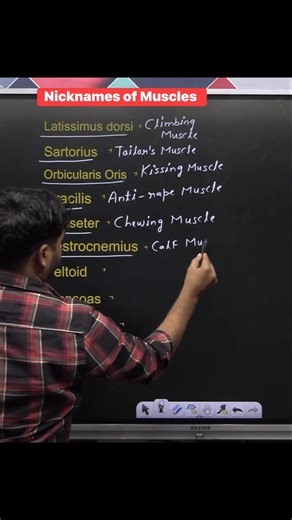 Nicknames of Muscles
Latissimus dorsi → Climbing
Muscle
Sartorius → Tailor's Muscle
Orbicularis Oris → Kissing Muscle
acilis → Anti-rape Muscle
seter → Chewing Muscle
strocnemius → Calf Mu
eltoid
soas